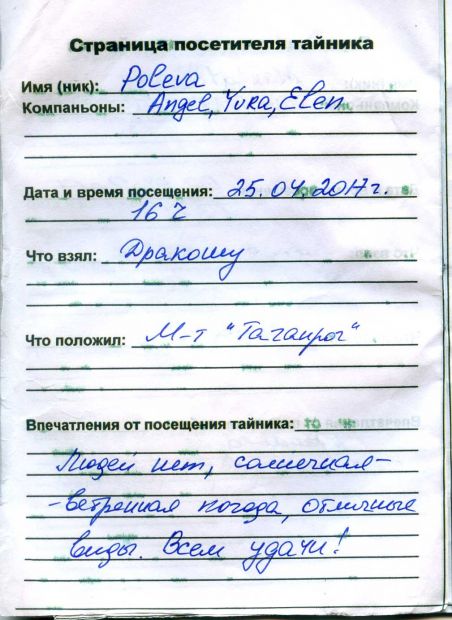 Страница посетителя тайника
Имя (ник): Poleva
Компаньоны: Angel, Yuka, Elen
Дата и время посещения: 25.04.2017г.
16 ч
Что взял: Дракошу
Что положил: М-т "Таганрог"
Впечатления от посещения тайника:
Людей нет, солнечная-
-ветренная погода, отличные
виды. Всем удачи!